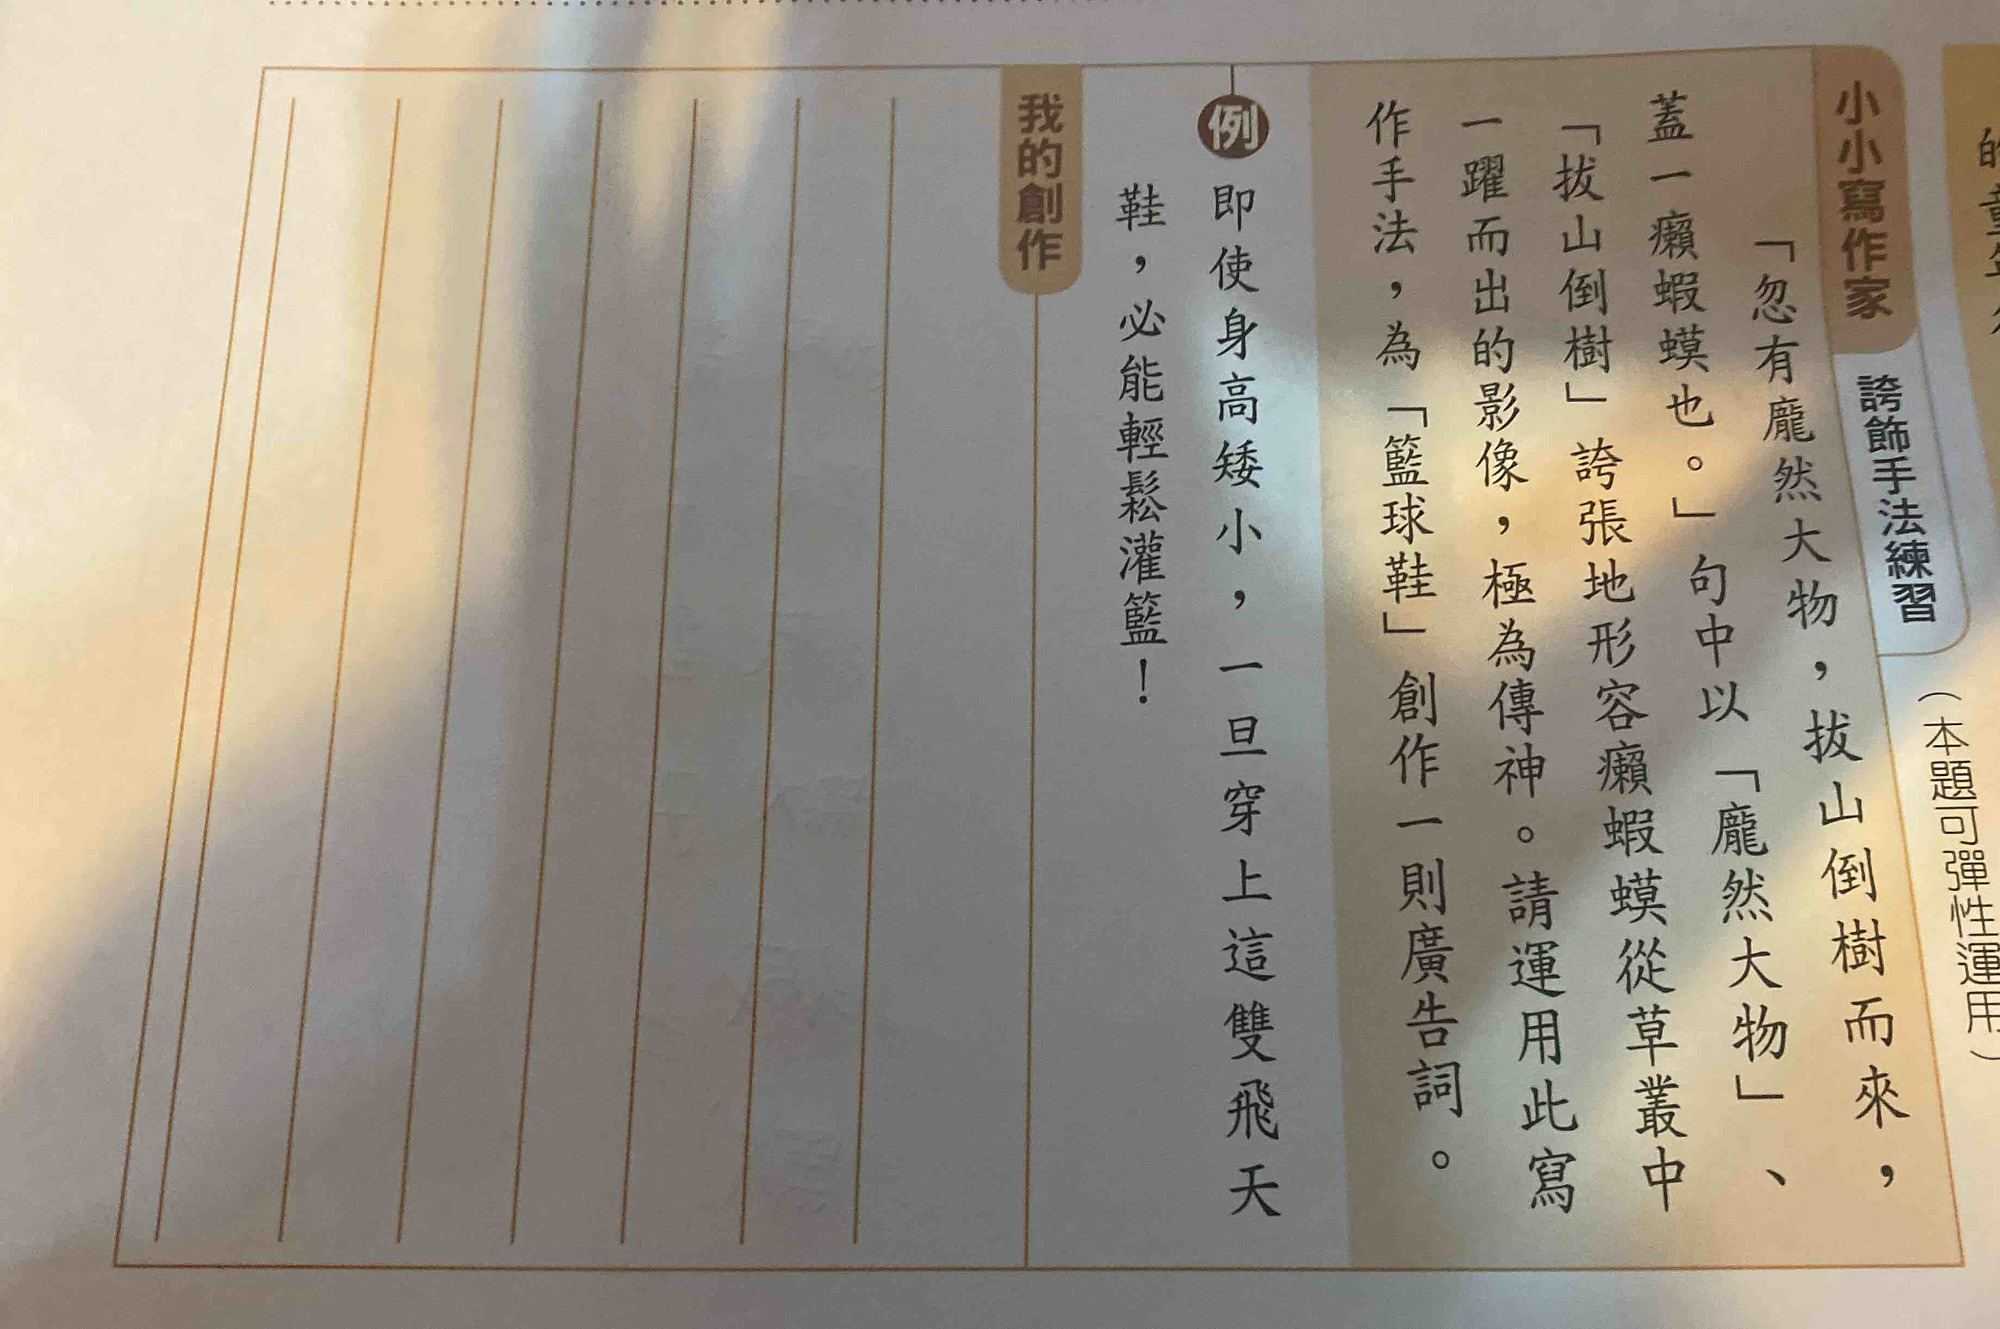 小小寫作家
誇飾手法練習
（本題可彈性運用）
「忽有龐然大物，拔山倒樹而來，
蓋一癩蝦蟆也。」句中以「龐然大物」、
「拔山倒樹」誇張地形容癩蝦蟆從草叢中
一躍而出的影像，極為傳神。請運用此寫
作手法，為「籃球鞋」創作一則廣告詞。
例
即使身高矮小，一旦穿上這雙飛天
鞋，必能輕鬆灌籃！
我的創作